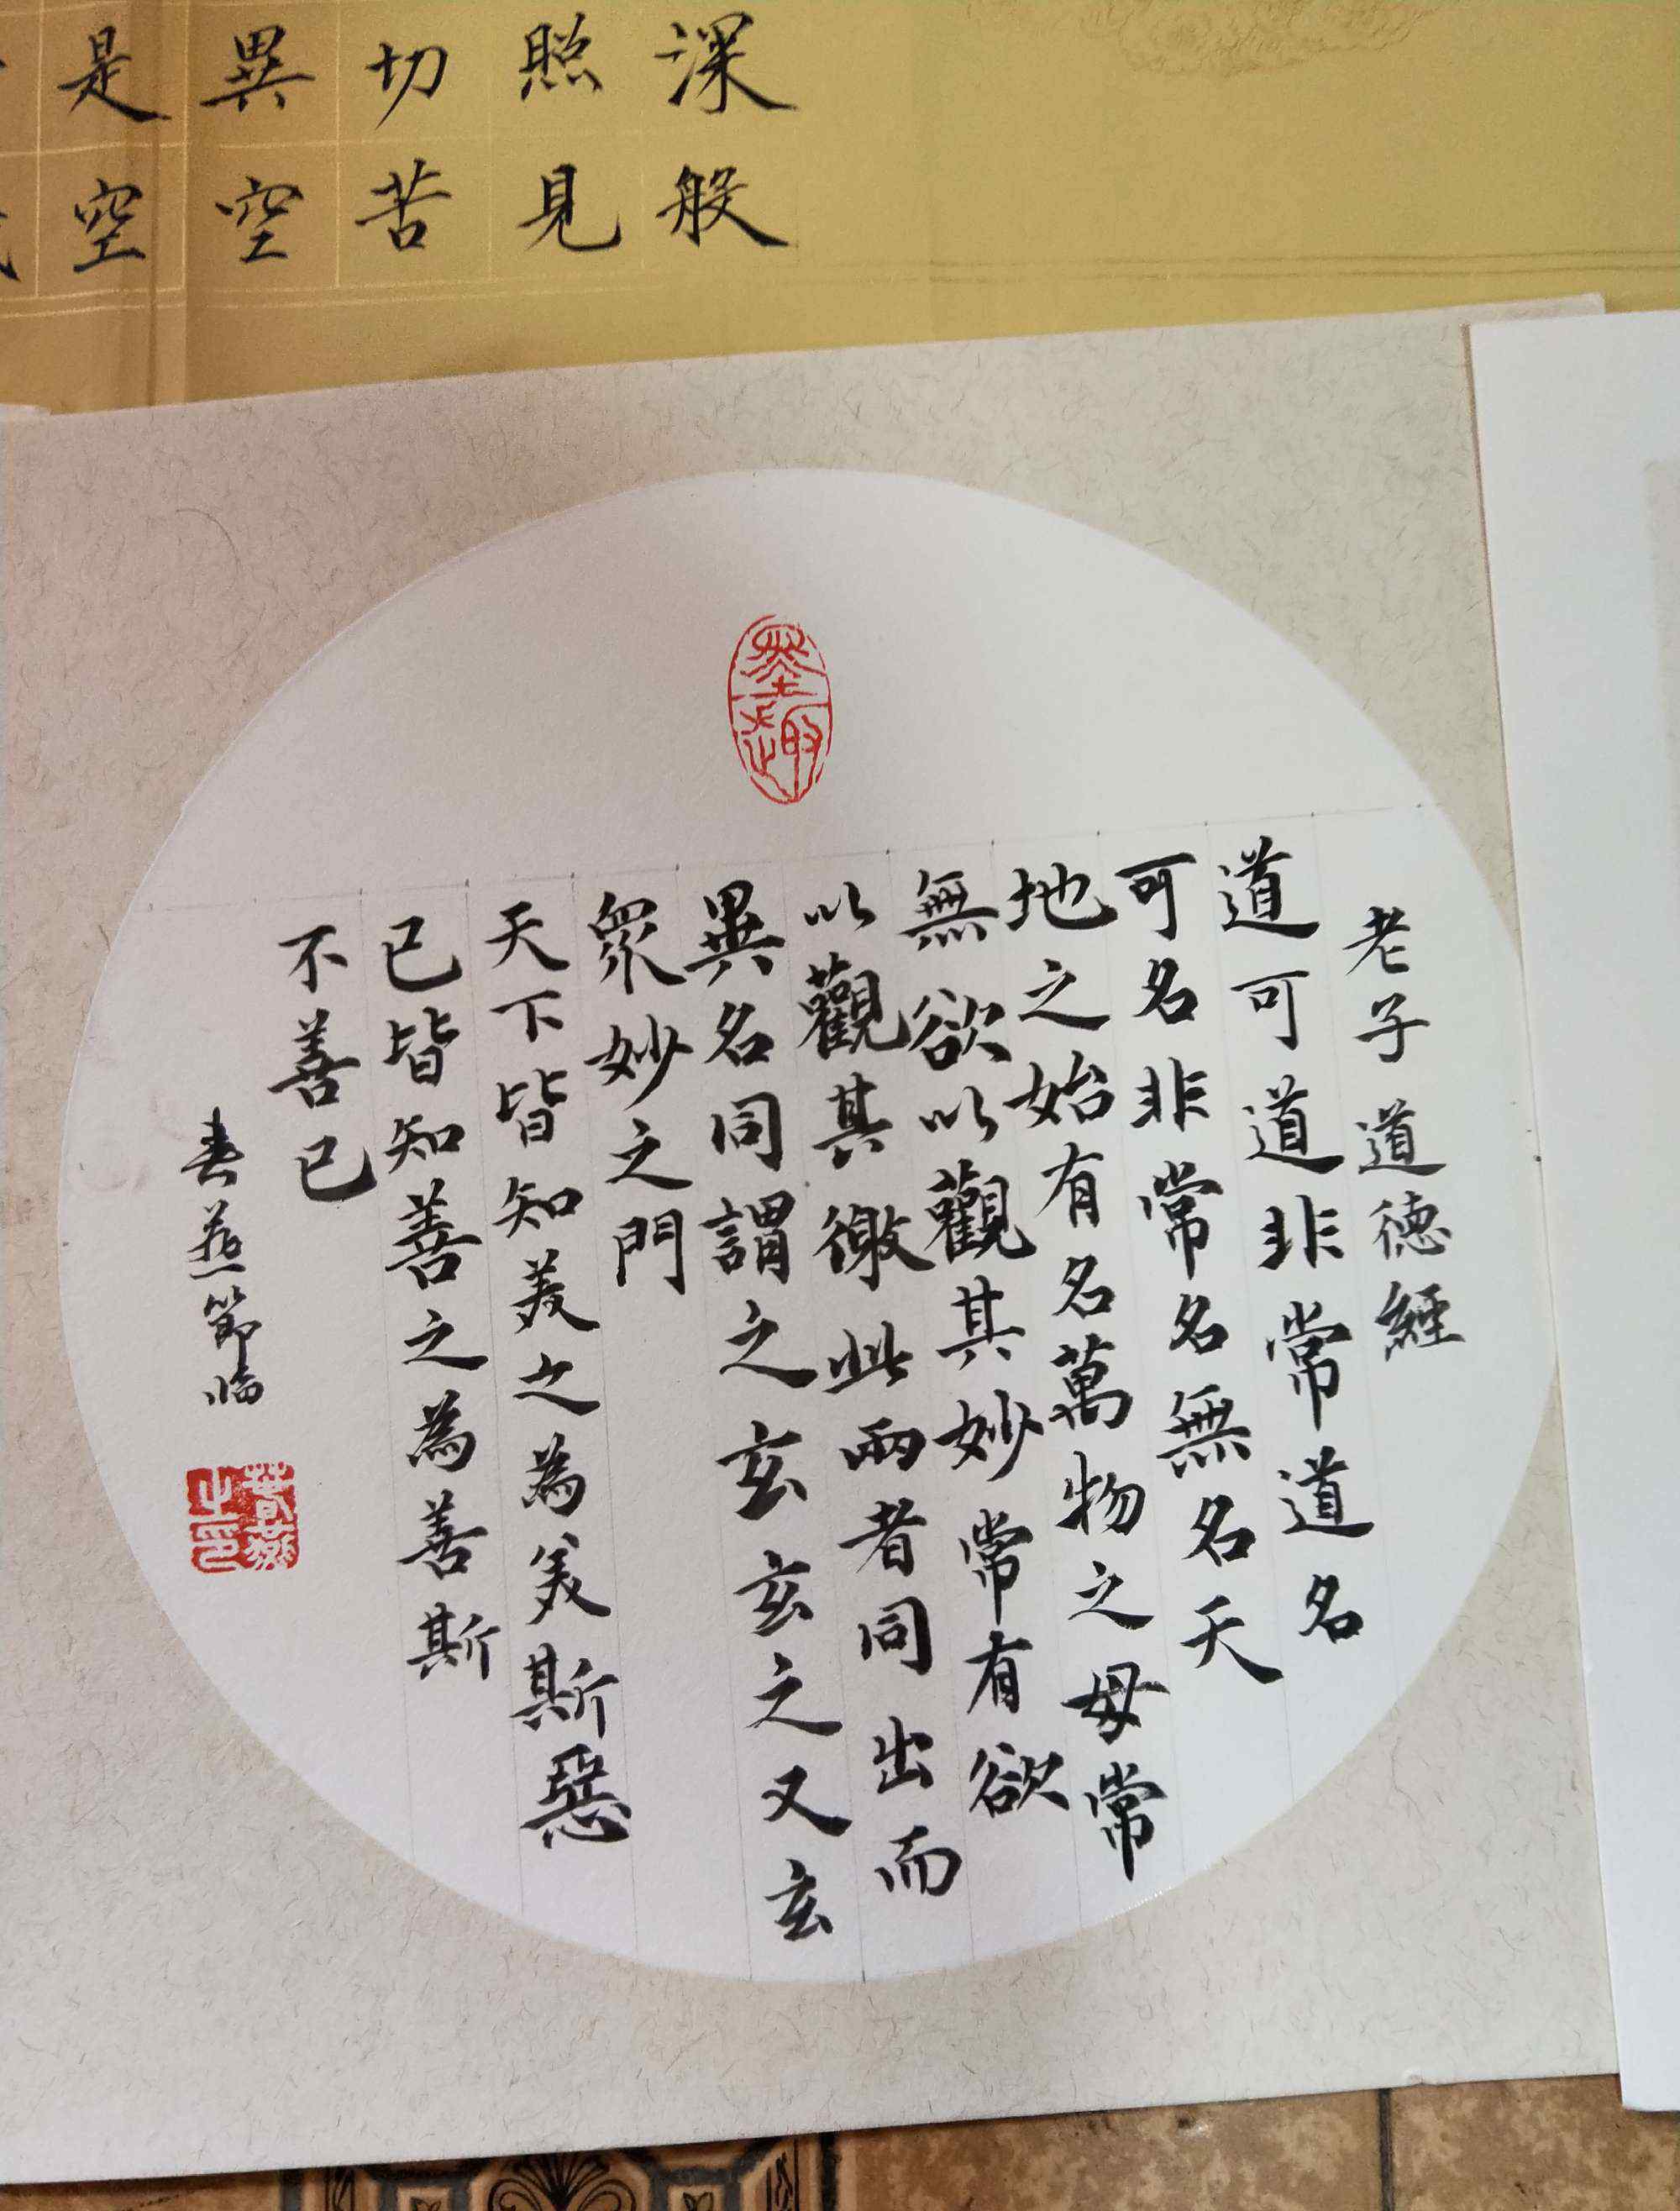 深般
照見
切苦
異空
是空
墨趣
老子道德經
道可道非常道名
可名非常名無名天
地之始有名萬物之母常
無欲以觀其妙常有欲
以觀其徼此兩者同出而
異名同謂之玄玄之又玄
眾妙之門
天下皆知美之為美斯惡
已皆知善之為善斯
不善已
春燕節臨
春燕之印